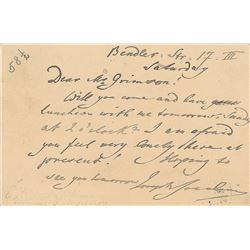 58 1/2
Bendler-Str. 17. III
Saturday
Dear Mr Grimson!
Will you come and have your
luncheon with me tomorrow, Sunday
at 2 o'clock? I am afraid
you feel very lonely there at
present! Hoping to
see you tomorrow Joseph Joachim